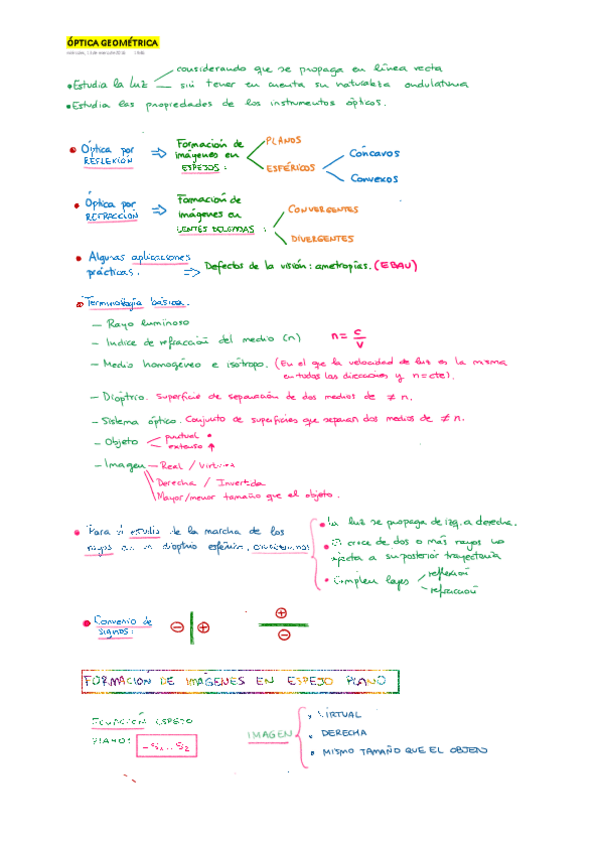 ÓPTICA GEOMÉTRICA
• Estudia la luz
considerando que se propaga en línea recta
sin tener en cuenta su naturaleza ondulatoria
• Estudia las propiedades de los instrumentos ópticos.
• Óptica por REFLEXIÓN ⇒ Formación de imágenes en ESPEJOS:
PLANOS
ESFÉRICOS
Cóncavos
Convexos
• Óptica por REFRACCIÓN ⇒ Formación de imágenes en LENTES DELGADAS:
CONVERGENTES
DIVERGENTES
• Algunas aplicaciones prácticas. ⇒ Defectos de la visión: ametropías. (EBAU)
• Terminología básica.
— Rayo luminoso
— Indice de refracción del medio (n) n = c/v
— Medio homogéneo e isótropo. (En el que la velocidad de luz es la misma
en todas las direcciones y n=cte).
— Dioptrio. Superficie de separación de dos medios de ≠ n.
— Sistema óptico. Conjunto de superficies que separan dos medios de ≠ n.
— Objeto
puntual •
extenso ↑
— Imagen — Real / Virtual
Derecha / Invertida
Mayor/menor tamaño que el objeto.
• Para el estudio de la marcha de los
rayos en un dioptrio esférico,
• La luz se propaga de izq. a derecha.
• El cruce de dos o más rayos no
afecta a su posterior trayectoria
• Cumplen leyes
reflexión
refracción
• Convenio de signos:
⊖ ⊕
⊕
⊖
FORMACION DE IMÁGENES EN ESPEJO PLANO
ECUACIÓN ESPEJO
PLANO:
IMAGEN
• VIRTUAL
• DERECHA
• MISMO TAMAÑO QUE EL OBJETO